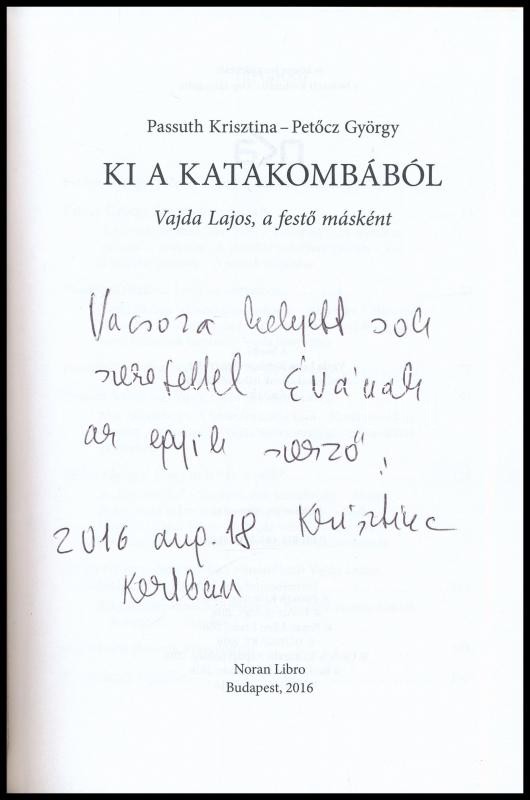 Passuth Krisztina – Petőcz György
KI A KATAKOMBÁBÓL
Vajda Lajos, a festő másként
Vacsora helyett sok
szeretettel Évának
az egyik szerző,
Krisztina
2016 aug. 18
Kertben
Noran Libro
Budapest, 2016